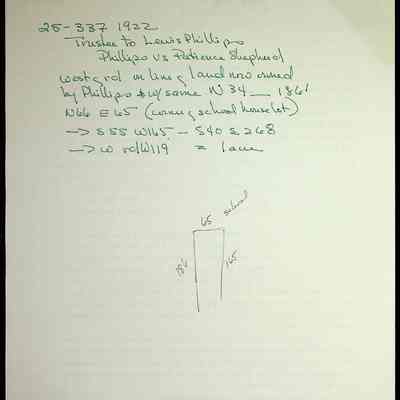 25-337 1922
Trustee to Lewis Phillips
Phillips vs Patience Shepherd
west g rd in line g land now owned
by Phillips & w/ same N 34 __ 186'
N66 E 65 (corner g school house lot)
→ S 55 W165 - S40 E 268
→ w rd/W119 = 1 acre
65 school
186
165